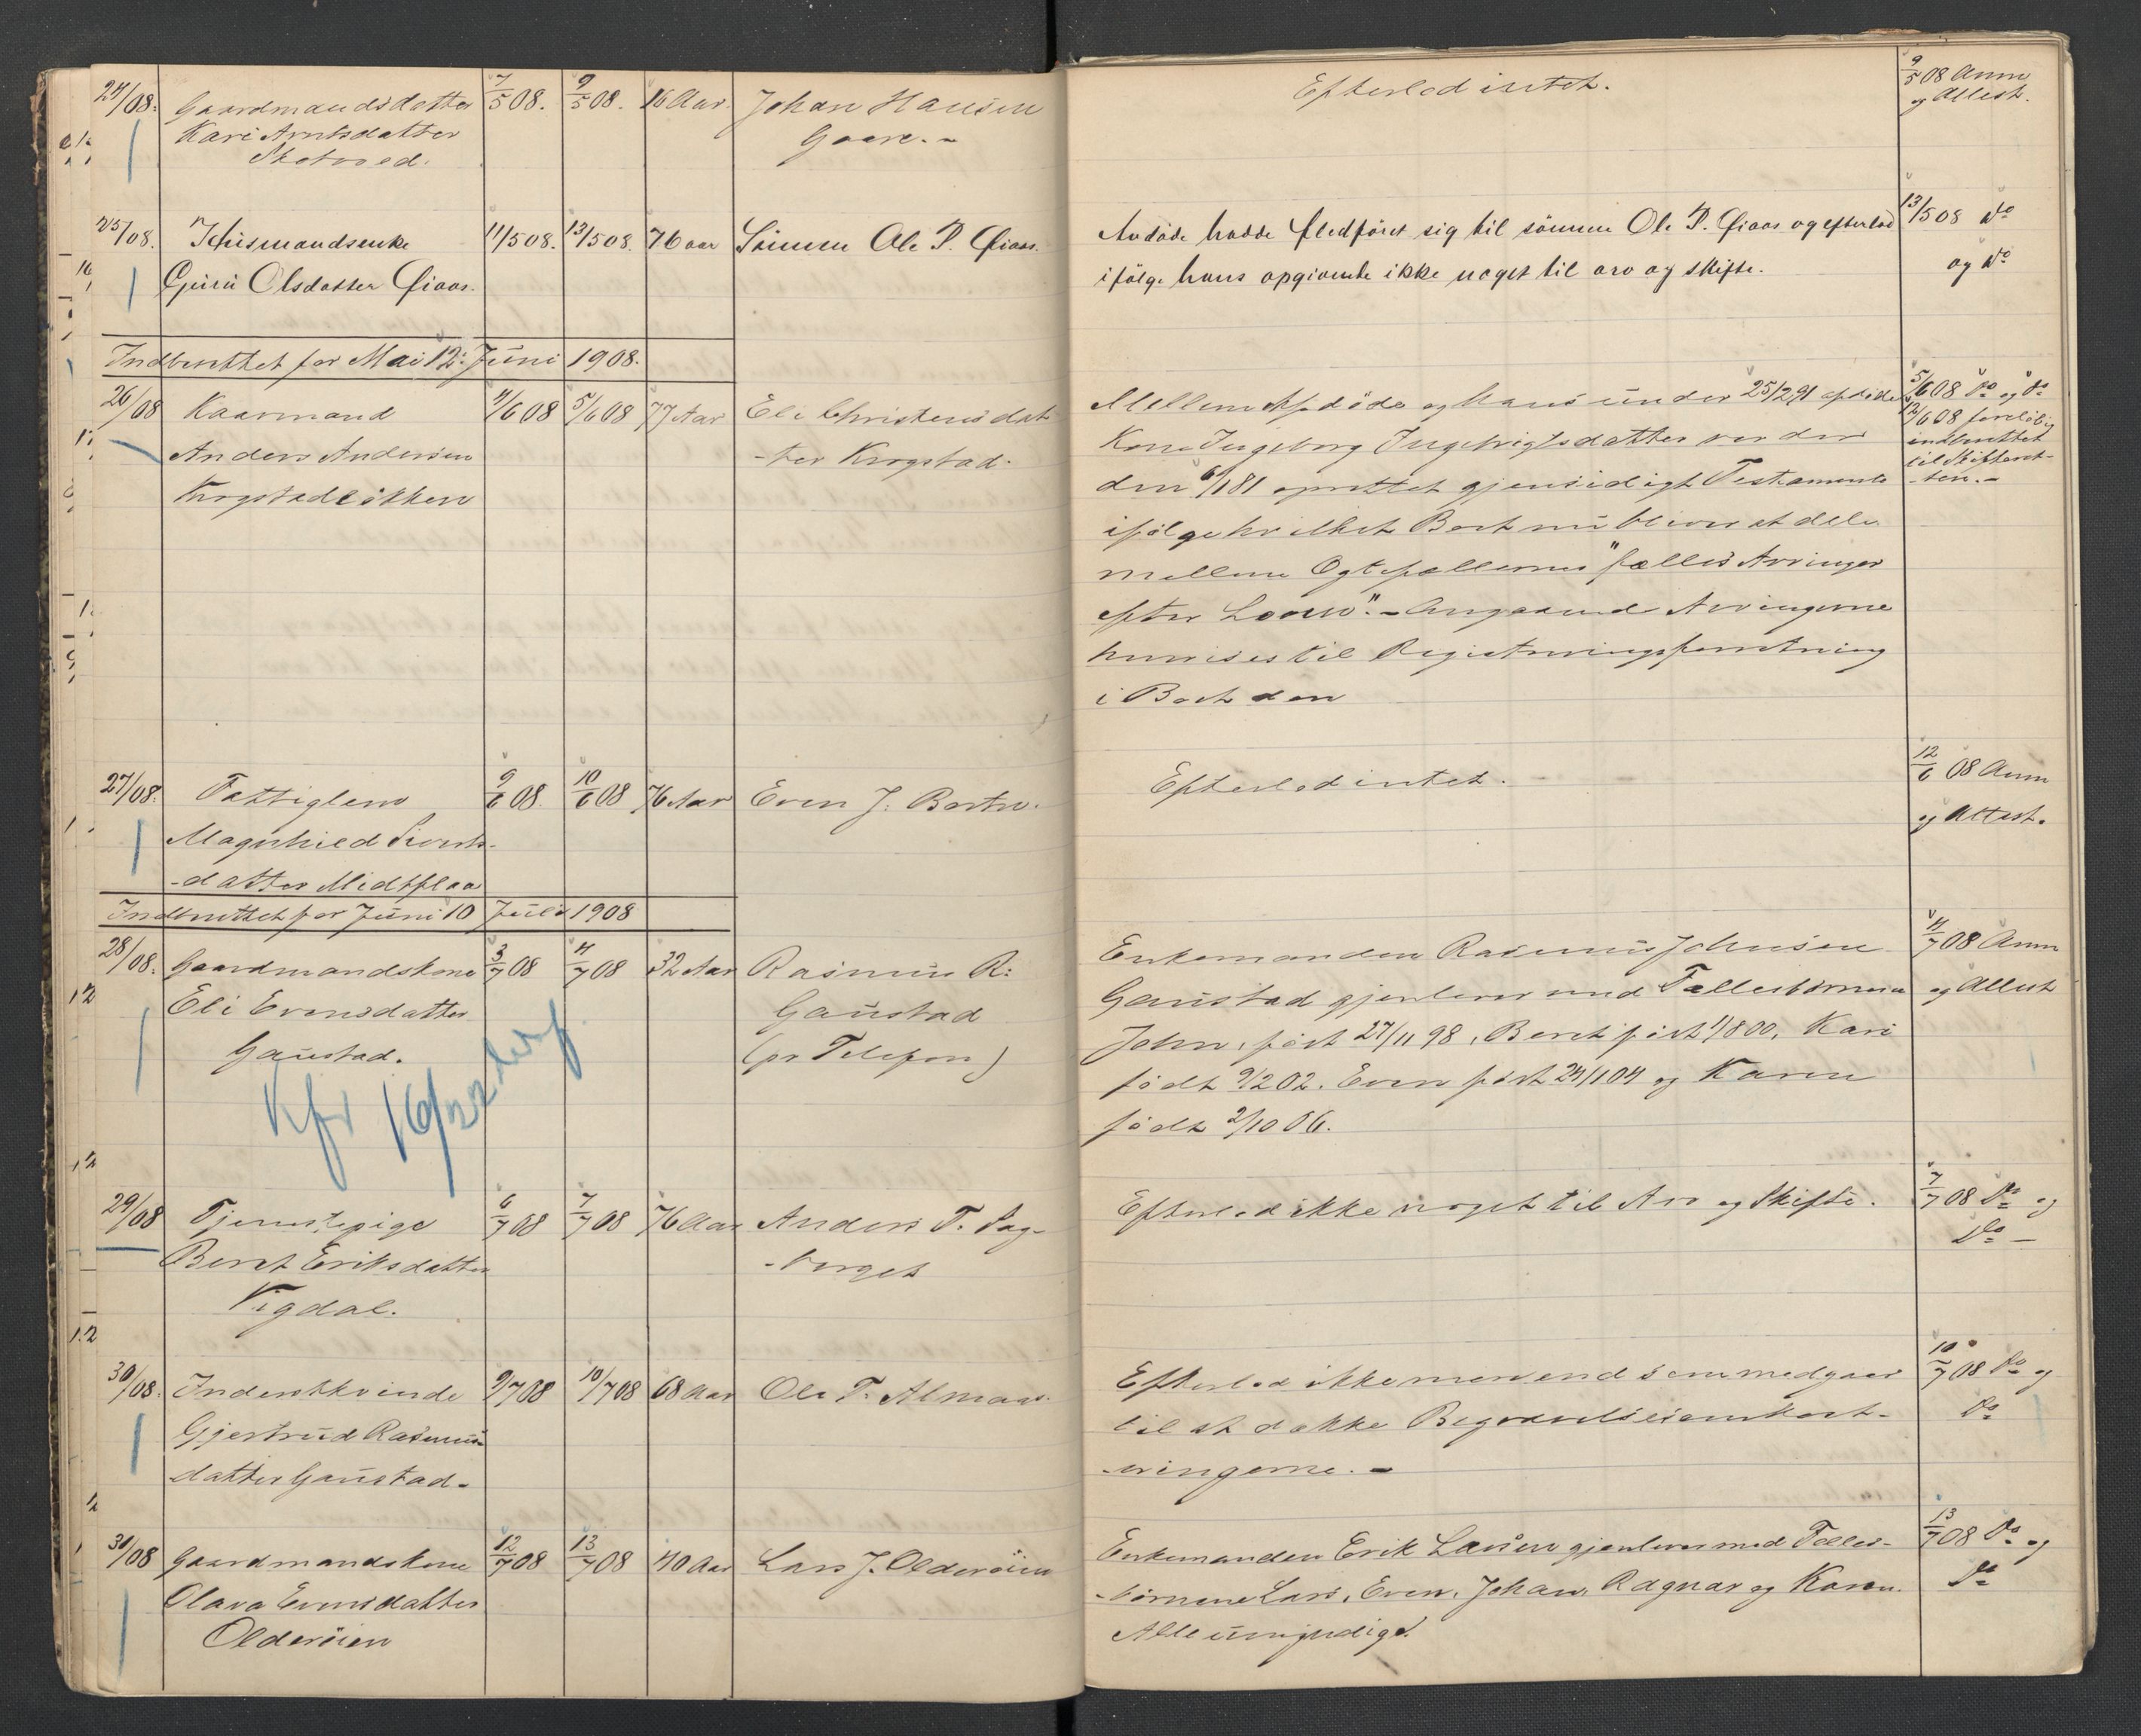 24/08. Gaardmandsdatter 7/5 08. 9/5 08. 16 Aar. Johan Hansen
Kari Arntsdatter Gaare.-
Skotvoed.
Efterlod intet.
9/5 08 Anm
og Attest.
25/08. Husmandsenke 11/5 08. 13/5 08. 76 aar Sönnen Ole P. Qiaas.
Guru Olsdatter Qiaas.
Avdöde hadde fledföret sig til sönnen Ole P. Qiaas og efterlod
ifölge hans opgivende ikke noget til arv og skifte.
13/5 08 Do
og Do
Indberettet for Mai 12: Juni 1908.
26/08 Kaarmand 4/6 08 5/6 08 77 Aar Eli Christensdat-
Anders Andersen -ter Krogstad.
Krogstadlökken
Mellem Afdöde og hans under 25/2 91 afdöde
Kone Ingeborg Ingebrigtsdatter var der
den 6/1 81 oprettet gjensidigt Testamente
ifölge hvilket Boet nu bliver at dele
mellem Ægtefællernes "fælles Arvinger
efter Loven".- Angaaende Arvingerne
henvises til Registreringsforretning
i Boet den
5/6 08 Do og Do
12/6 08 foreløbig
indberettet
til Skifteret-
-ten.-
27/08. Fattiglem 9/6 08. 10/6 08 76 Aar Even J. Borten.
Magnhild Siverts-
-datter Midtflaa
Efterlod intet.
12/6 08 Anm
og Attest.
Indberettet for Juni 10 Juli 1908
28/08. Gaardmandskone 3/7 08 4/7 08 32 Aar Rasmus R.
Eli Evensdatter Gaustad
Gaustad. (pr Telefon)
Kfr 16/22
Enkemanden Rasmus Johnsen
Gaustad gjenlever med Fællesbörnene
John, födt 27/11 98, Beret födt 4/8 00, Kari
födt 9/2 02. Even födt 24/1 04 og Karen
födt 2/10 06.
4/7 08 Anm
og Attest
29/08 Tjenestepige 6/7 08 7/7 08 76 Aar Anders T. Sag-
Beret Eriksdatter -berget
Vigdal.
Efterlod ikke noget til Arv og Skifte.
7/7 08 Do og
Do -
30/08. Inderstkvinde 9/7 08 10/7 08 68 Aar Ole T. Almaas.
Gjertrud Rasmus-
datter Gaustad-
Efterlod ikke mer end som medgaar
til at dække Begravelsesomkost-
-ningerne.-
10/7 08 Do og
Do
31/08 Gaardmandskone 12/7 08 13/7 08 40 Aar Lars J. Olderöien
Olava Evensdatter
Olderöien
Enkemanden Erik Larsen gjenlever med Fælles-
-börnene Lars, Even, Johan, Ragnar og Karen.
Alle umyndige.
13/7 08 Do og
Do